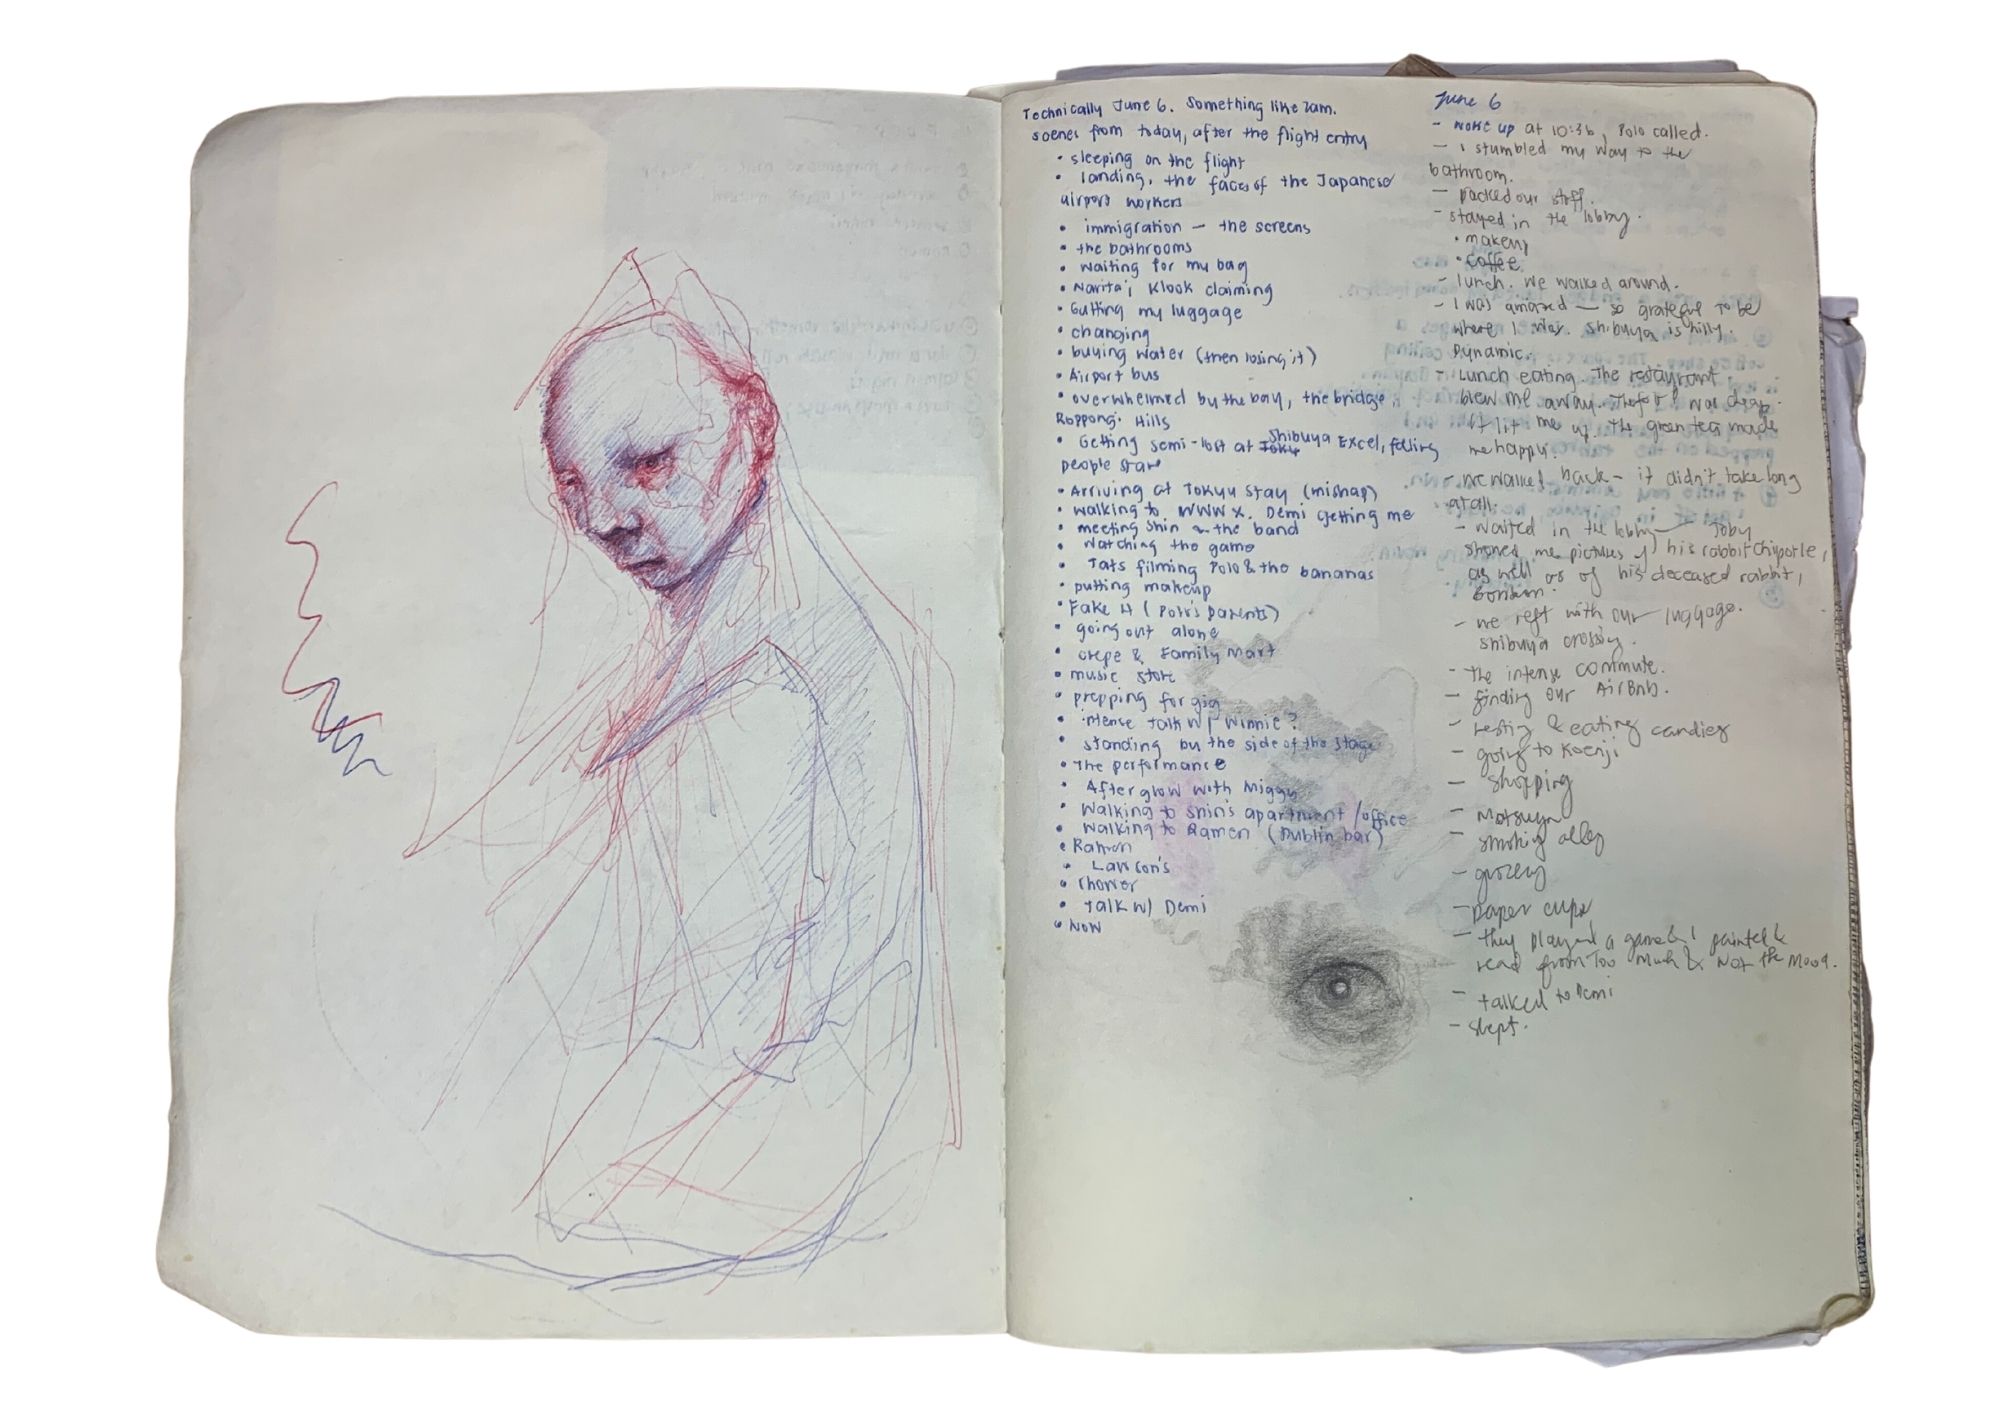 Technically June 6. Something like 2am.
scenes from today, after the flight entry
• sleeping on the flight
• landing, the faces of the Japanese
airport workers
• immigration — the screens
• the bathrooms
• waiting for my bag
• Narita; Klook claiming
• Gutting my luggage
• changing
• buying water (then losing it)
• Airport bus
• overwhelmed by the bay, the bridge,
Roppongi Hills
• Getting semi-lost at Shibuya Excel, feeling
people stare
• Arriving at Tokyu Stay (mishap)
• walking to WWW X. Demi getting me
• meeting Shin & the band
• Watching the game
• Tats filming Polo & the bananas
• putting makeup
• Fake It (Polo's parents)
• going out alone
• crepe & Family Mart
• music store
• prepping for gig
• intense talk w/ Winnie?
• standing by the side of the stage
• The performance
• After glow with Miggy
• Walking to Shin's apartment/office
• Walking to Ramen (Dublin bar)
• Ramen
• Lawson's
• shower
• talk w/ Demi
• Now
June 6
– woke up at 10:36, Polo called.
– I stumbled my way to the
bathroom.
– packed our stuff.
– stayed in the lobby.
• makeup
• coffee
– lunch. We walked around.
– I was amazed — so grateful to be
where I was. Shibuya is hilly.
Dynamic.
– Lunch eating. The restaurant
blew me away. The was
It lit me up. The green tea made
me happy.
– We walked back – it didn't take long
at all.
– waited in the lobby — Toby
showed me pictures of his rabbit Chipotle,
as well as of his deceased rabbit,
– we left with our luggage.
Shibuya crossing.
– the intense commute.
– finding our AirBnb.
– resting & eating candies
– going to Koenji
– shopping
– Matsuya
– smoking alley
– grocery
– paper cups
– they played a game & I painted &
read from Too Much & Not the Mood.
– talked to Demi
– slept.